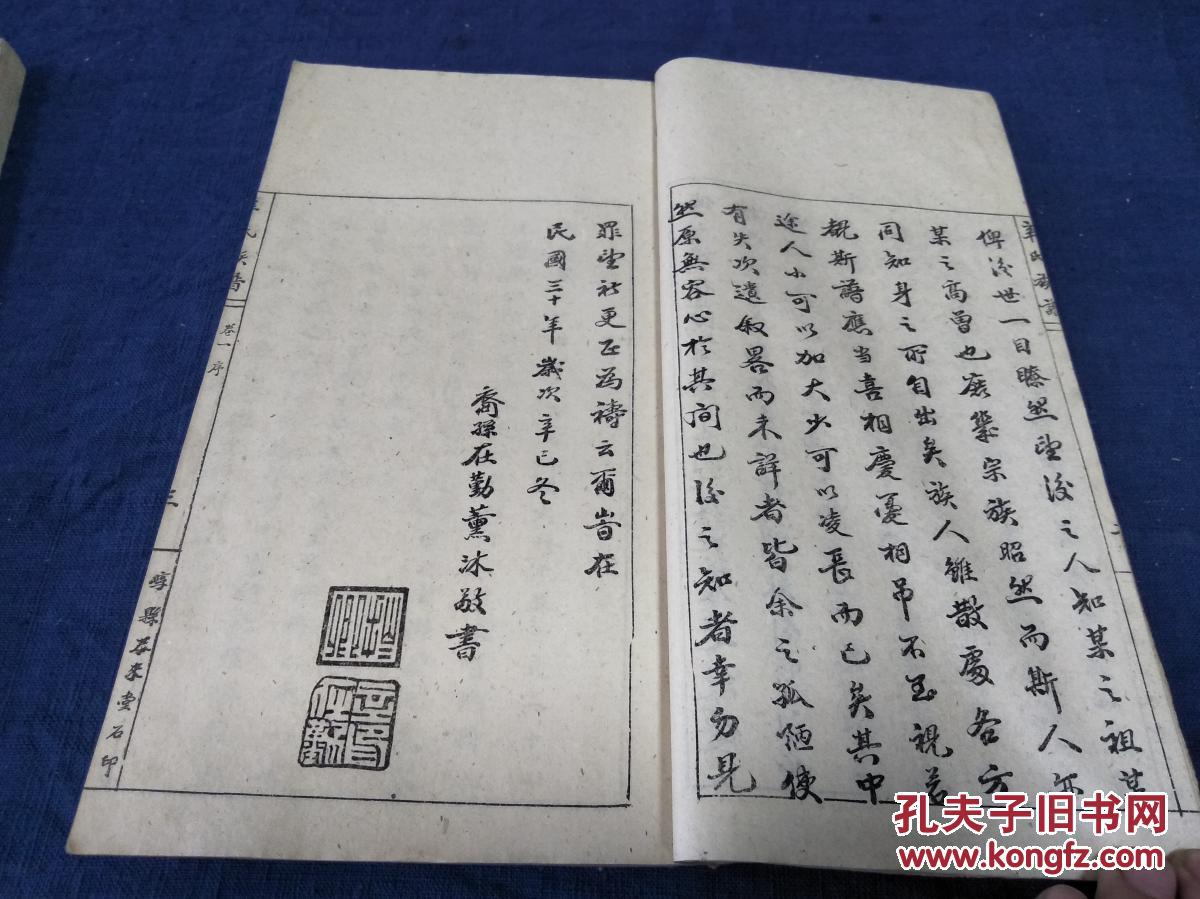 俾後世一目瞭然望後之人知某之祖某
某之高曾也庶幾宗族昭然而斯人亦
同知身之所自出矣族人雖散處各方
觀斯譜應当喜相慶憂相弔不至視若
途人小可以加大少可以凌長而已矣其中
有失次遺叙畧而未詳者皆余之孤陋使
然原無容心於其间也後之知者幸勿見
罪望祈更正为禱云爾旹在
民國三十年歲次辛巳冬
裔孫在勤薰沐敬書
氏族譜
卷一
序
三
縣
春來堂石印
孔夫子旧书网
www.kongfz.com